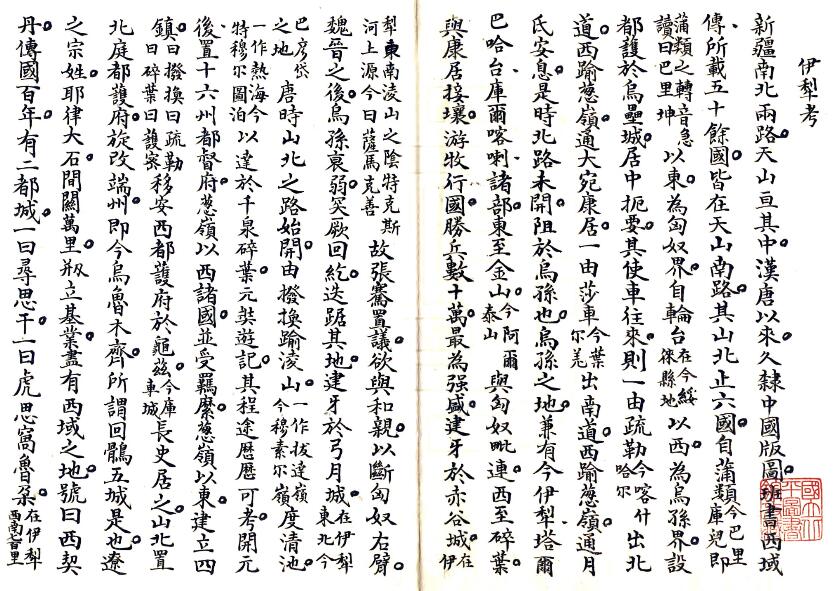 伊犁考
新疆南北兩路天山亘其中漢唐以來久隸中國版圖班書西域
傳所載五十餘國皆在天山南路其山北止六國自蒲類今巴里庫兒即
蒲類之轉音急讀曰巴里坤以東為匈奴界自輪台在今綏徠縣地以西為烏孫界設
都護於烏壘城居中扼要其使車往來則一由疏勒今喀什哈尔出北
道西踰葱嶺通大宛康居一由莎車今葉尔羌出南道西踰葱嶺通月
氏安息是時北路未開阻於烏孫也烏孫之地兼有今伊犁塔爾
巴哈台庫爾喀喇諸部東至金山今阿爾泰山與匈奴毗連西至碎葉
與康居接壤游牧行國勝兵數十萬最為强盛建牙於赤谷城在伊
犁東南淩山之陰特克斯河上源今曰薩馬克善故張騫置議欲與和親以斷匈奴右臂
魏晉之後烏孫衰弱突厥回紇迭踞其地建牙於弓月城在伊犁東北今
巴彦岱之地唐時山北之路始開由撥換踰淩山一作拔達嶺今穆素尔嶺度清池
一作熱海今特穆尔圖泊以達於千泉碎葉元奘遊記其程途歷歷可考開元
後置十六州都督府葱嶺以西諸國並受羈縻葱嶺以東建立四
鎮曰撥換曰疏勒曰碎葉曰䕶密移安西都護府於龜茲今庫車城長史居之山北置
北庭都護府旋改端州即今烏魯木齊所謂回鶻五城是也遼
之宗姓耶律大石間關萬里刱立基業盡有西域之地號曰西契
丹傳國百年有二都城一曰尋思干一曰虎思窩魯朶在伊犁西南七百里